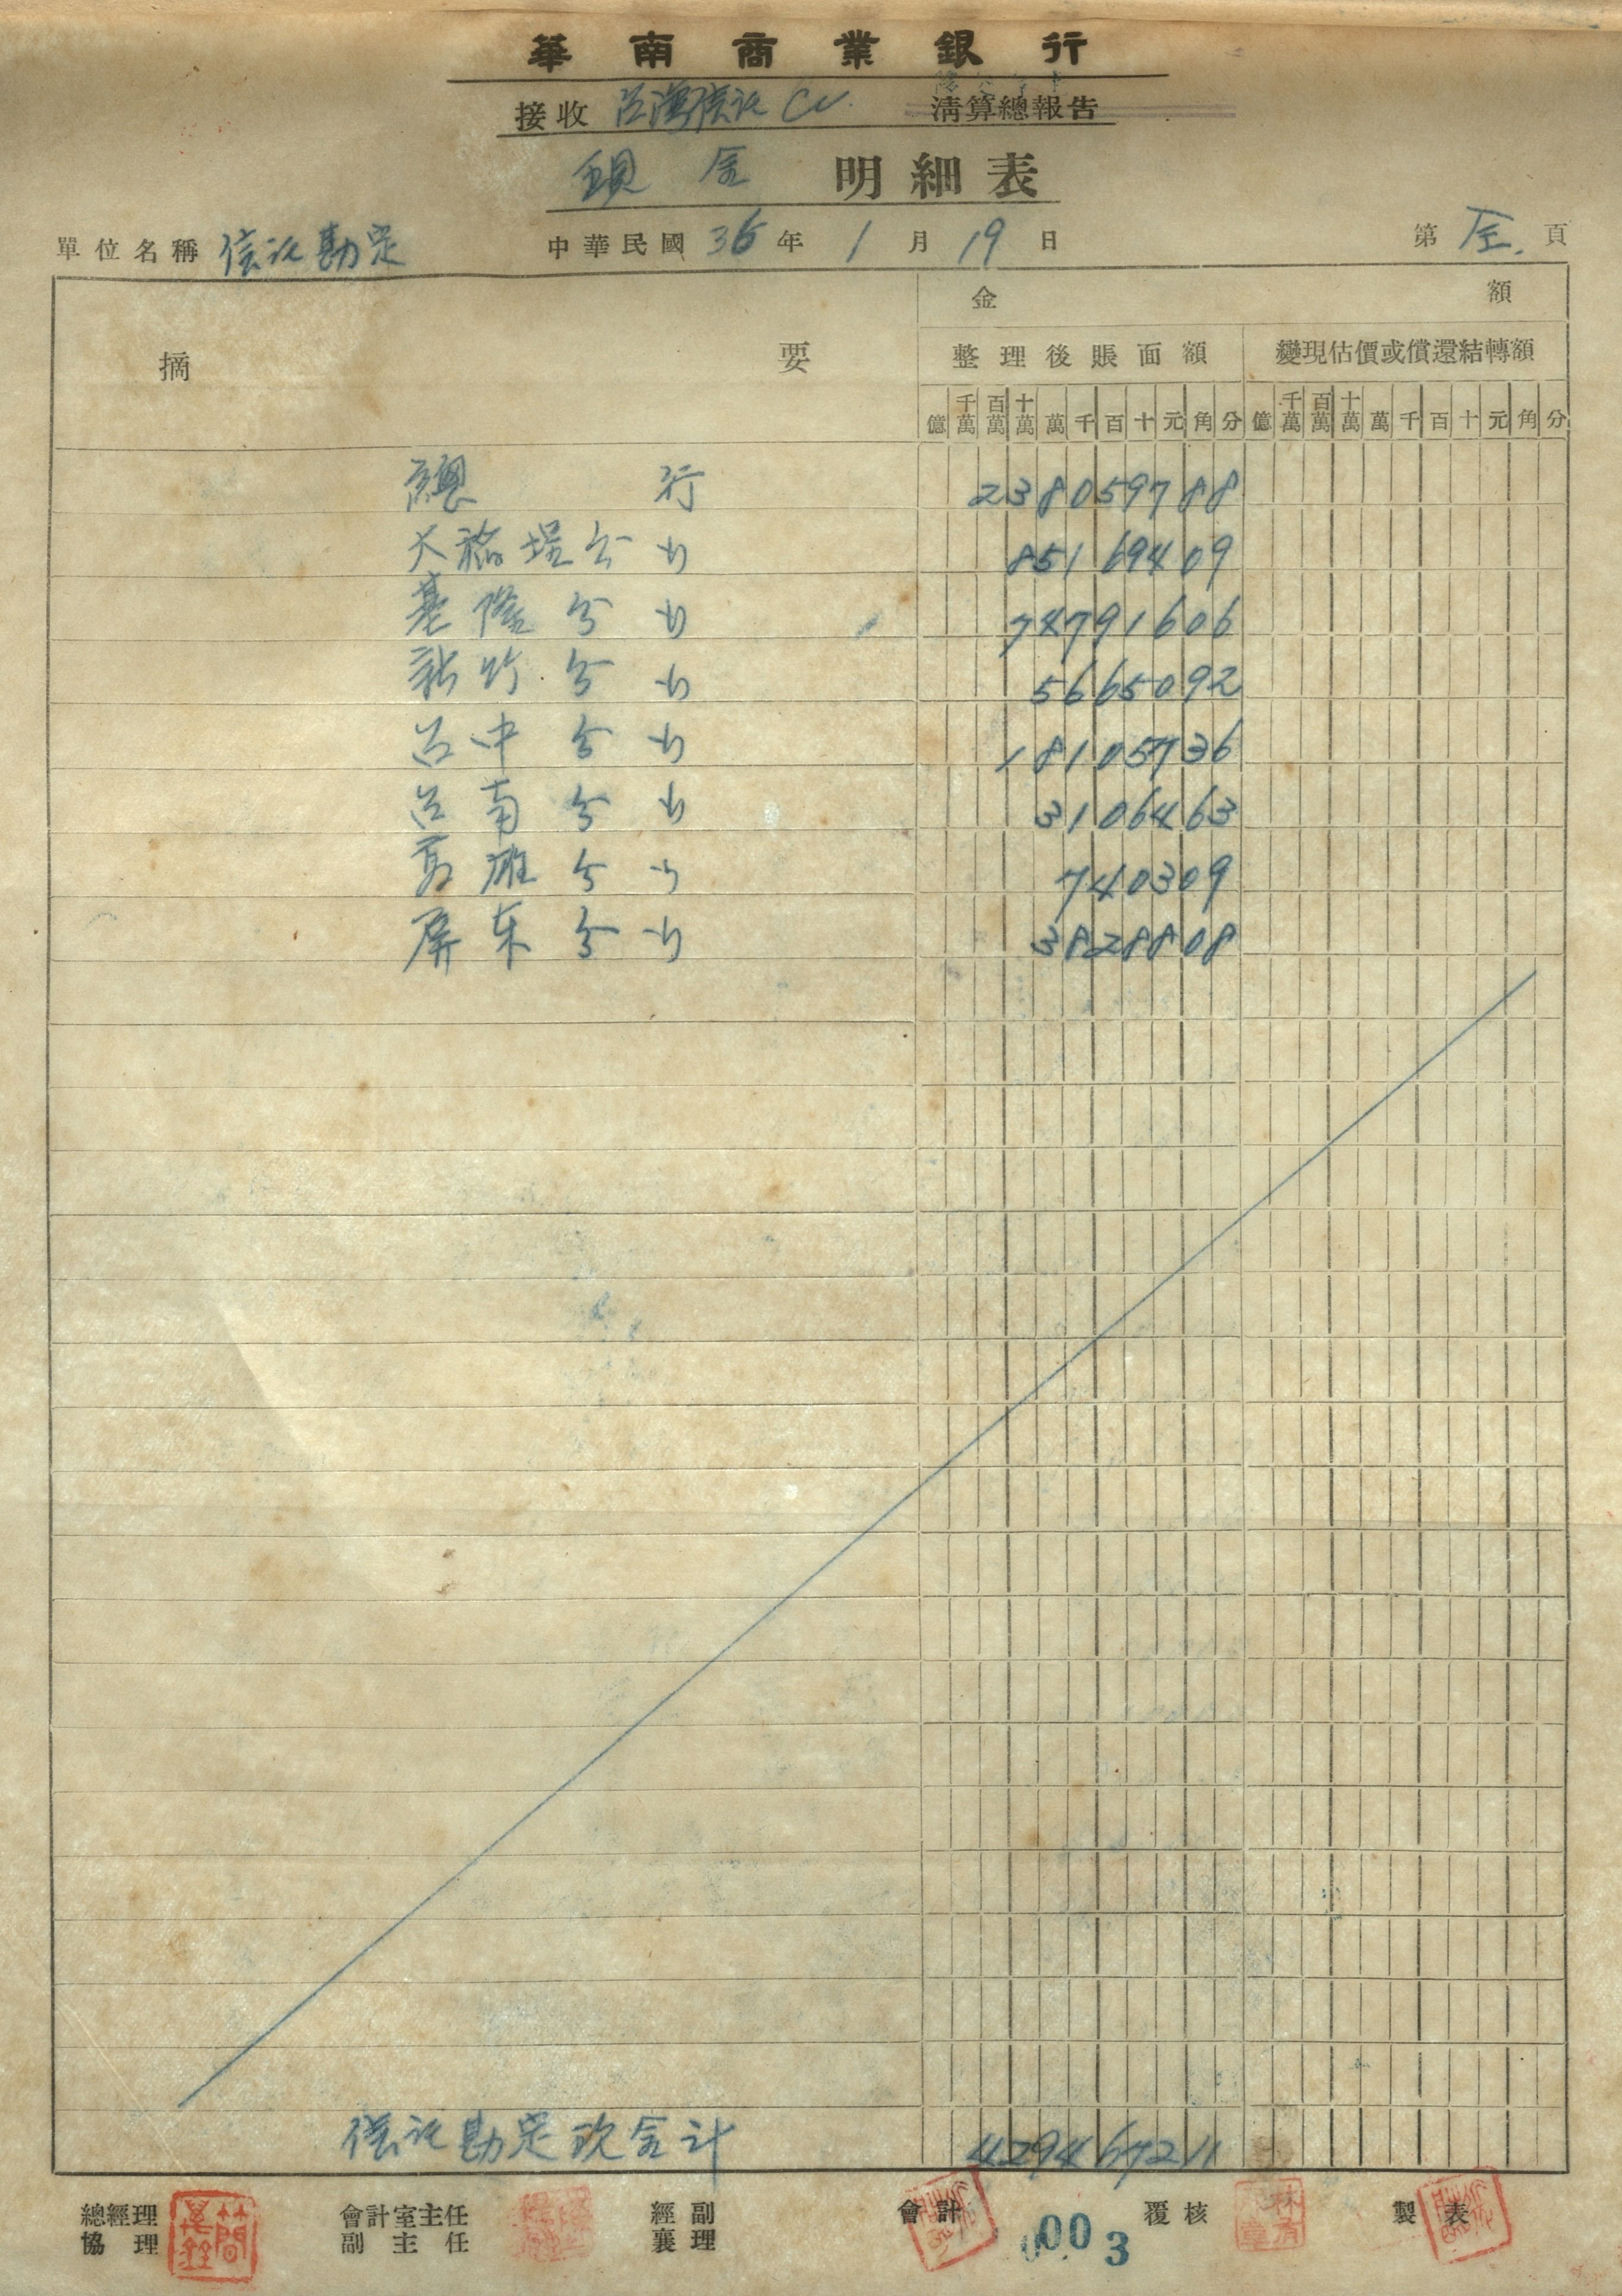 華南商業銀行
接收 台灣信託 Co. 清算總報告
現金 明細表
單位名稱 信託勘定 中華民國 36 年 1 月 19 日 第 全 頁
摘要 金額
整理後賬面額 變現估價或償還結轉額
億 千萬 百萬 十萬 萬 千 百 十 元 角 分 億 千萬 百萬 十萬 萬 千 百 十 元 角 分
總行 238059788
大稻埕分〃 85169409
基隆分〃 74791606
新竹分〃 5665092
台中分〃 18105736
台南分〃 3106463
高雄分〃 740309
屏东分〃 3828808
信託勘定現金計 429467211
總經理 會計室主任 經副 會計 覆核 製表
協理 副主任 襄理
0003